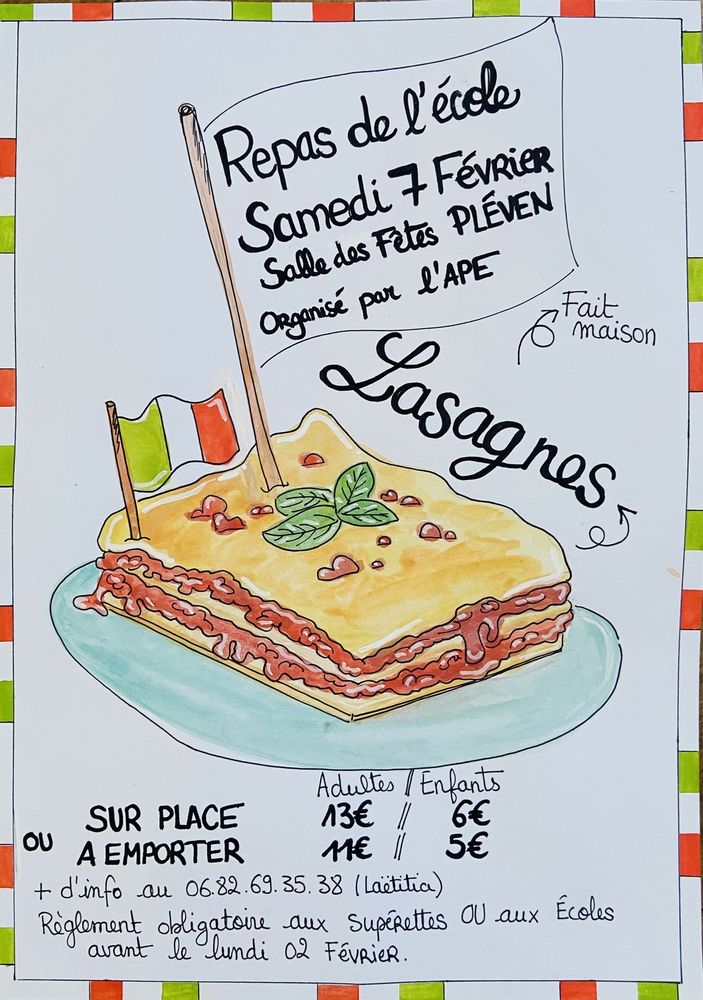 Repas de l'école
Samedi 7 Février
Salle des Fêtes PLÉVEN
Organisé par l'APE
Fait
maison
Lasagnes
Adultes // Enfants
SUR PLACE 13€ // 6€
OU A EMPORTER 11€ // 5€
+ d'info au 06.82.69.35.38 (Laëtitia)
Règlement obligatoire aux Supérettes OU aux Écoles
avant le lundi 02 Février.